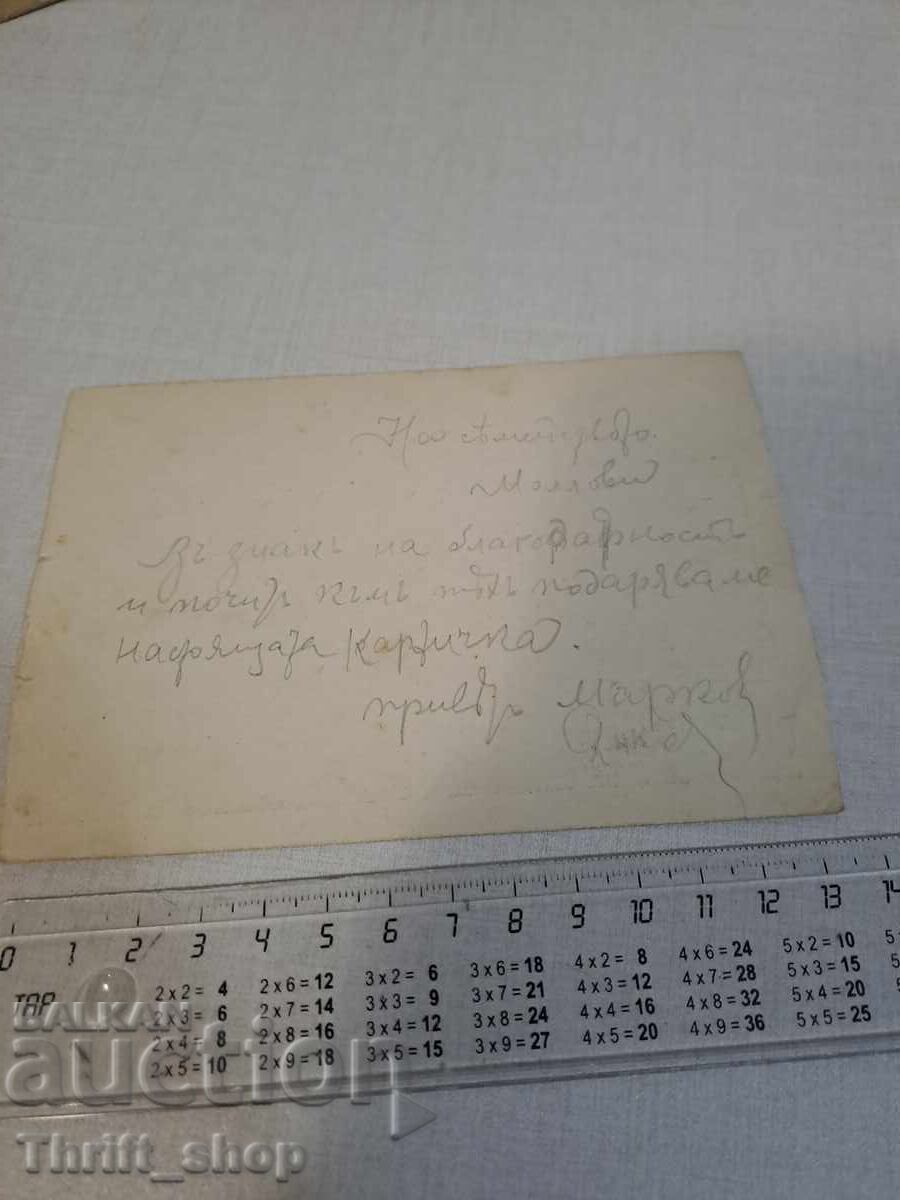 На семейството
Моллови
Въ знакъ на благодарность
и почить къмъ тѣхъ подаряваме
настоящата картичка.
привѣтъ Марков
0 1 2 3 4 5 6 7 8 9 10 11 12 13 14
2 x 2 = 4 2 x 6 = 12 3 x 2 = 6 3 x 6 = 18 4 x 2 = 8 4 x 6 = 24 5 x 2 = 10
2 x 3 = 6 2 x 7 = 14 3 x 3 = 9 3 x 7 = 21 4 x 3 = 12 4 x 7 = 28 5 x 3 = 15
2 x 4 = 8 2 x 8 = 16 3 x 4 = 12 3 x 8 = 24 4 x 4 = 16 4 x 8 = 32 5 x 4 = 20
2 x 5 = 10 2 x 9 = 18 3 x 5 = 15 3 x 9 = 27 4 x 5 = 20 4 x 9 = 36 5 x 5 = 25
BALKAN
auction
Thrift_shop